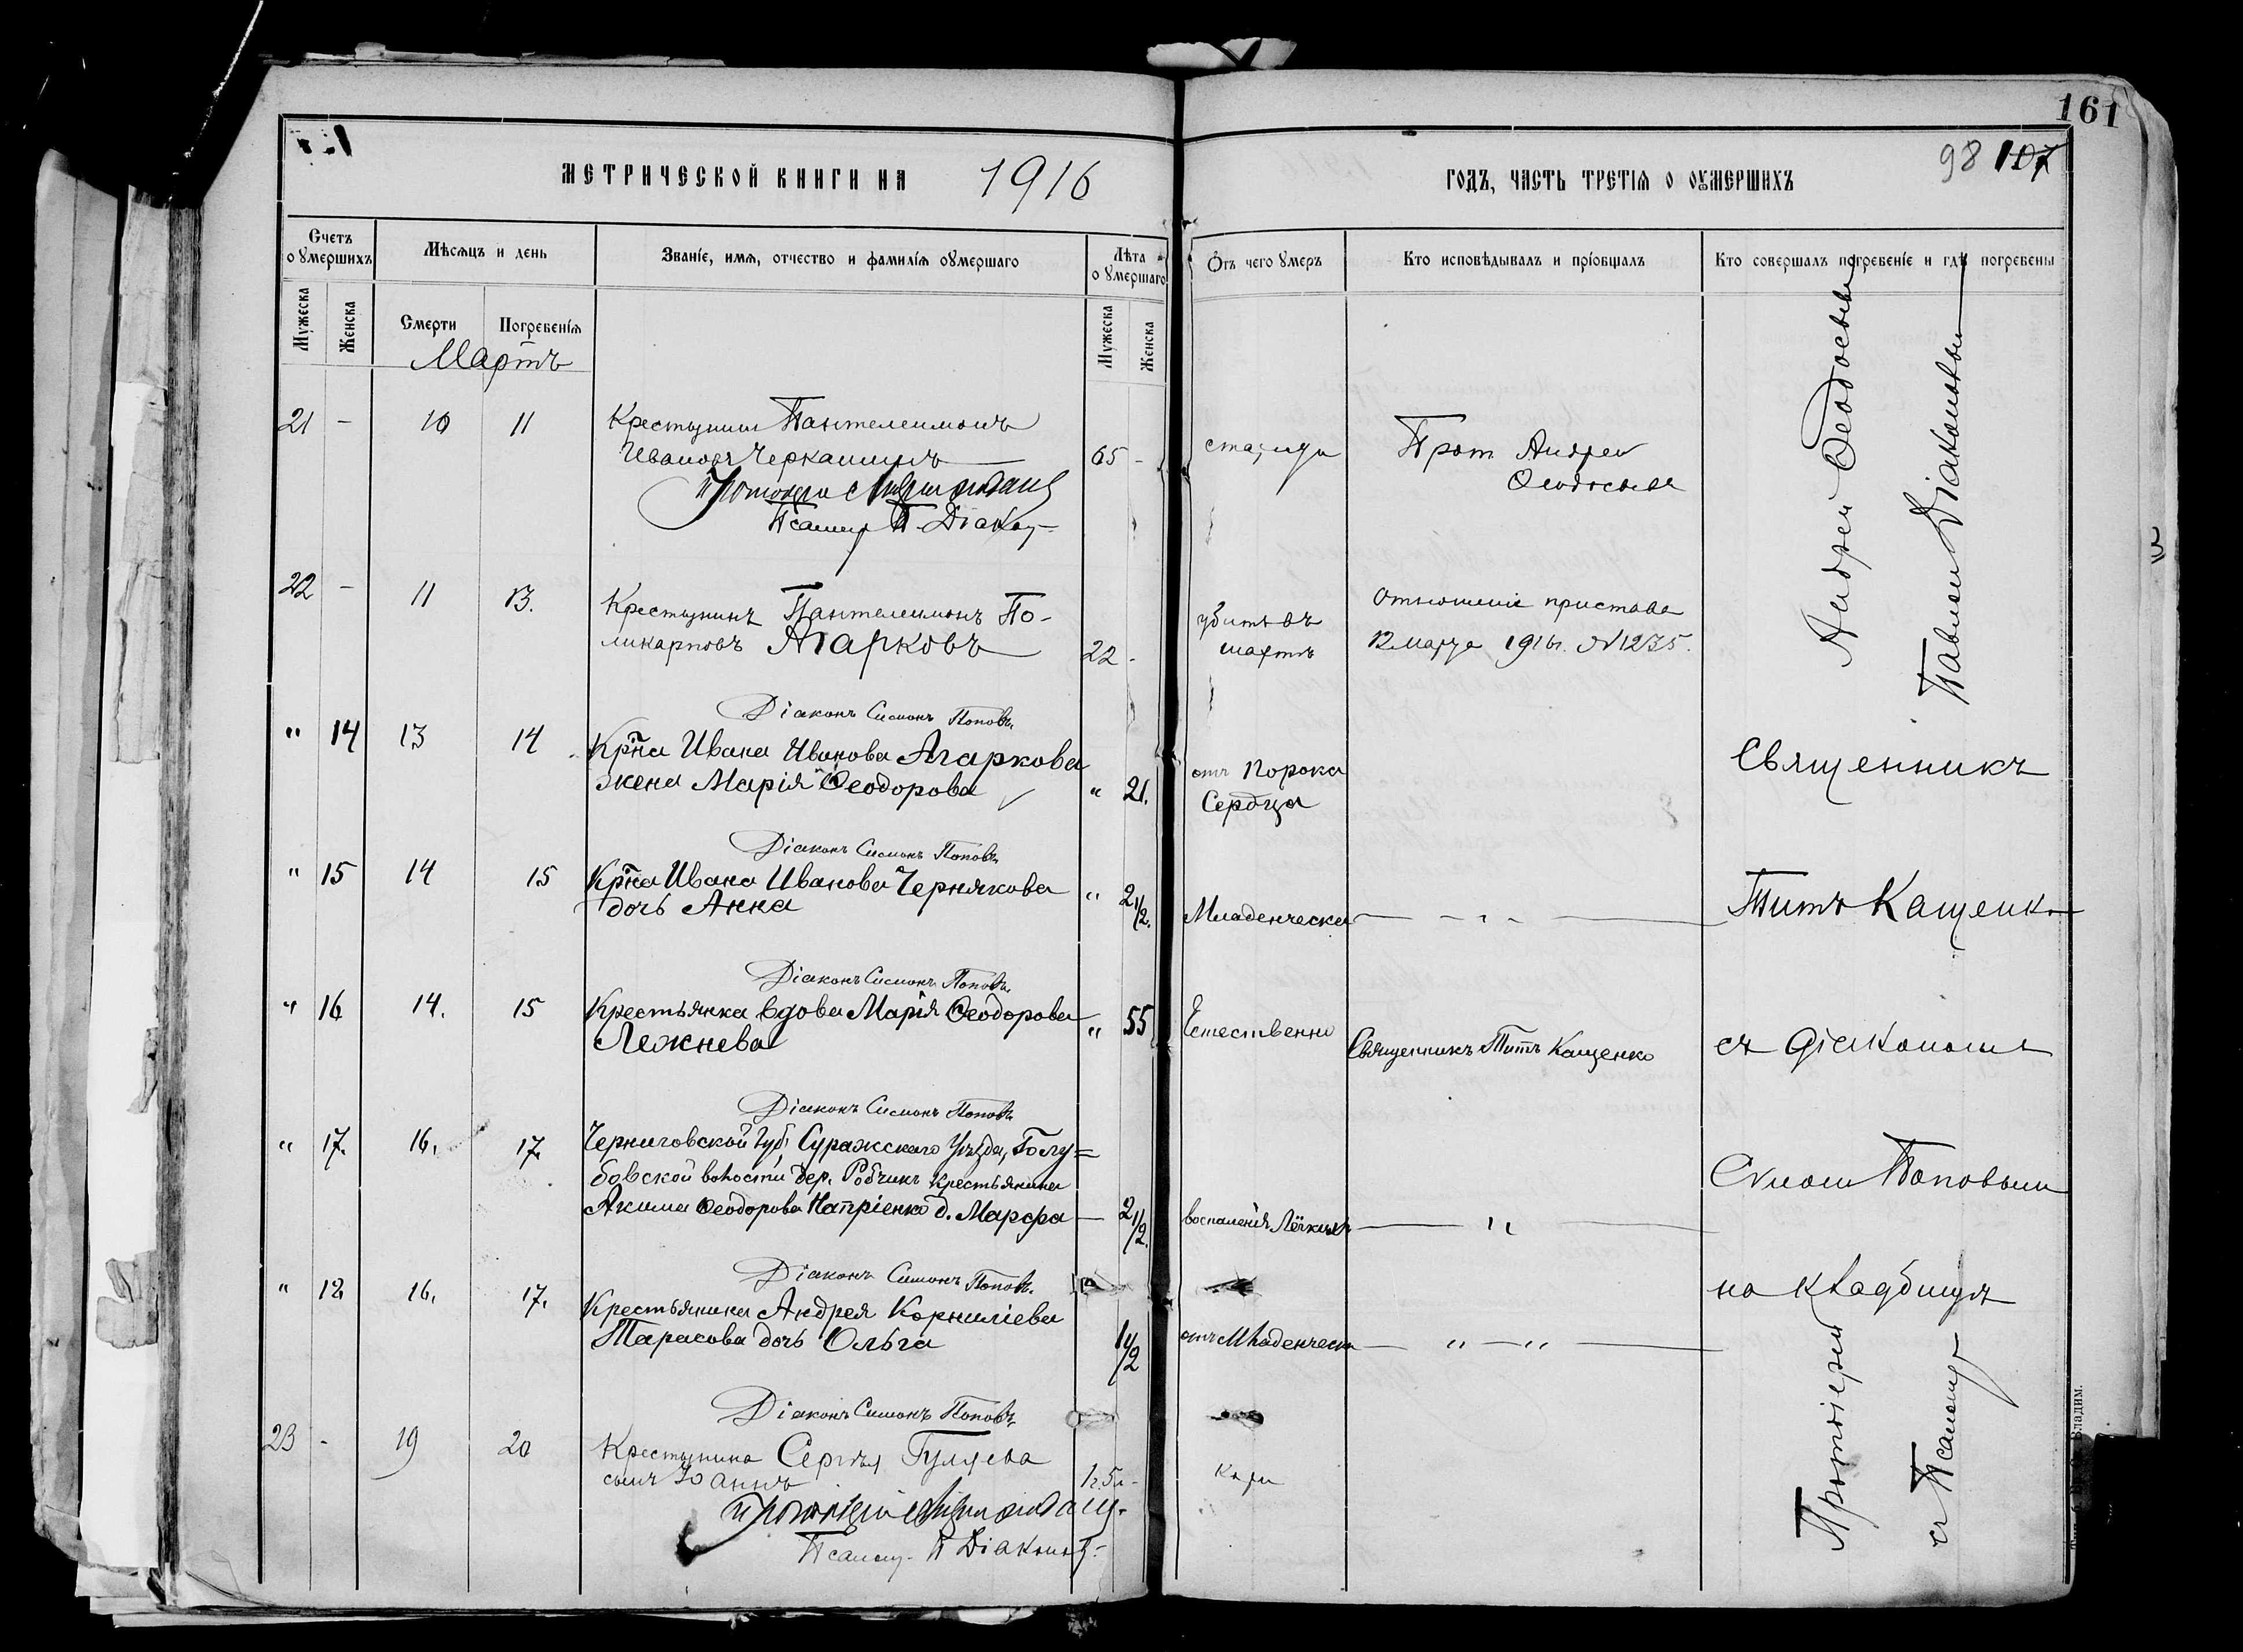 161
98 107
МЕТРИЧЕСКОЙ КНИГИ НА 1916 ГОДЪ, ЧАСТЬ ТРЕТІЯ О ОУМЕРШИХЪ
Счетъ оумершихъ
Мѣсяцъ и день
Званіе, имя, отчество и фамилія оумершаго
Лѣта оумершаго
Отъ чего умеръ
Кто исповѣдывалъ и пріобщалъ
Кто совершалъ погребеніе и гдѣ погребены
Мужеска
Женска
Смерти
Погребенія
Мужеска
Женска
Мартъ
21 - 10 11
Крестьянин Пантелеимонъ
Ивановъ Черкашинъ
65 -
Прот Андрей
Псаломщ П. Діакон
22 - 11 13.
Крестьянинъ Пантелеимонъ По-
ликарповъ Агарковъ
22 -
убитъ въ
Отношеніе пристава
12 марта 1916 г. № 1235.
Діаконъ Симонъ Поповъ
" 14 13 14
Кр‑на Ивана Иванова Агаркова
жена Марія Ѳеодорова
" 21.
отъ Порока
Сердца
Діаконъ Симонъ Поповъ
" 15 14 15
Кр‑на Ивана Иванова Чернякова
дочь Анна
" 2 1/2.
Младенческа — " —
Діаконъ Симонъ Поповъ
" 16 14. 15
Крестьянка вдова Марія Ѳеодорова
Лежнева
" 55
Естественно
Священникъ Титъ Кащенко
Діаконъ Симонъ Поповъ
" 17. 16. 17.
Черниговской Губ, Суражскаго Уѣзда, Голу=
бовской волости дер. Робчикъ крестьянина
Акима Ѳеодорова Напріенко д. Марфа
— 2 1/2.
воспаленія Лёгкихъ — " —
Діаконъ Симонъ Поповъ
" 18 16. 17.
Крестьянина Андрея Корниліева
Тарасова дочь Ольга
1 1/2
отъ Младенческ — " — " —
Діаконъ Симонъ Поповъ
23 - 19 20
Крестьянина Сергѣя Гуляева
сынъ Іоаннъ
Кори
Псаломщ. П Діаконов
Протоіерей Андрей Ѳеодосьев
съ Псаломщ Павлом Діаконовым
Священникъ
Титъ Кащенко
съ діакономъ
Симон Поповым
на кладбищѣ
Владим.